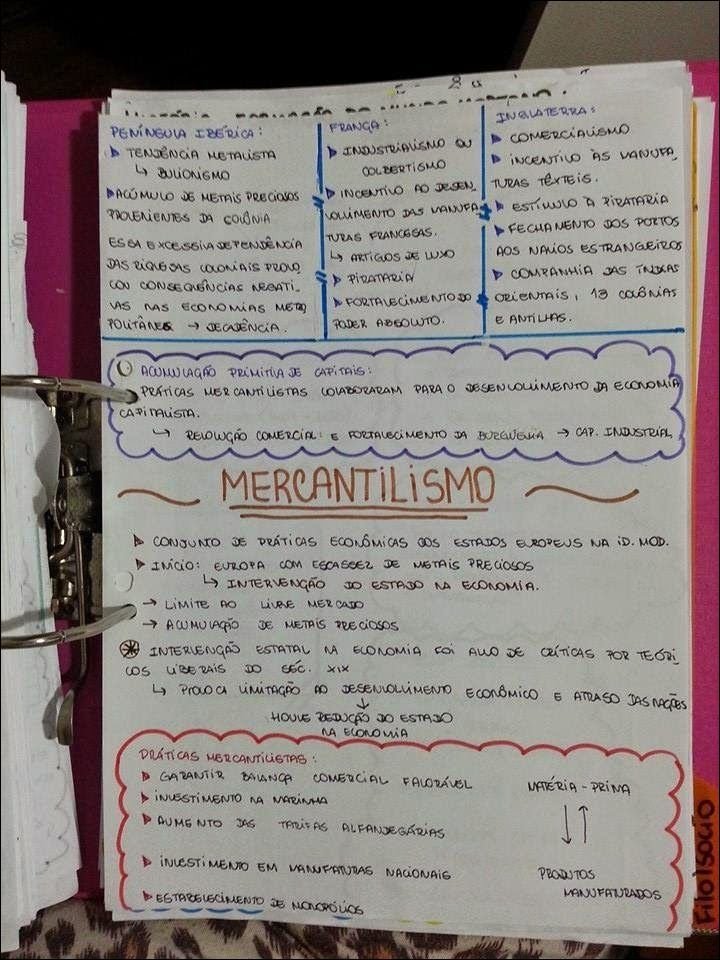 PENÍNSULA IBÉRICA:
▸ TENDÊNCIA METALISTA
↳ BULIONISMO
▸ ACÚMULO DE METAIS PRECIOSOS
PROVENIENTES DA COLÔNIA
ESSA EXCESSIVA DEPENDÊNCIA
DAS RIQUESAS COLONIAIS PROVO
COU CONSEQUÊNCIAS NEGATI-
VAS NAS ECONOMIAS METRO
POLITANAS → DECADÊNCIA.
FRANÇA:
▸ INDUSTRIALISMO OU
COLBERTISMO
▸ INCENTIVO AO DESEN-
VOLVIMENTO DAS MANUFA
TURAS FRANCESAS.
↳ ARTIGOS DE LUXO
▸ PIRATARIA
▸ FORTALECIMENTO DO
PODER ABSOLUTO.
INGLATERRA:
▸ COMERCIALISMO
▸ INCENTIVO ÀS MANUFA-
TURAS TÊXTEIS.
▸ ESTÍMULO À PIRATARIA
▸ FECHAMENTO DOS PORTOS
AOS NAVIOS ESTRANGEIROS
▸ COMPANHIA DAS ÍNDIAS
ORIENTAIS, 13 COLÔNIAS
E ANTILHAS.
ACUMULAÇÃO PRIMITIVA DE CAPITAIS:
PRÁTICAS MERCANTILISTAS COLABORARAM PARA O DESENVOLVIMENTO DA ECONOMIA
CAPITALISTA.
↳ REVOLUÇÃO COMERCIAL: E FORTALECIMENTO DA BURGUESIA → CAP. INDUSTRIAL
MERCANTILISMO
▸ CONJUNTO DE PRÁTICAS ECONÔMICAS DOS ESTADOS EUROPEUS NA ID. MOD.
▸ INÍCIO: EUROPA COM ESCASSEZ DE METAIS PRECIOSOS
↳ INTERVENÇÃO DO ESTADO NA ECONOMIA.
→ LIMITE AO LIVRE MERCADO
→ ACUMULAÇÃO DE METAIS PRECIOSOS
INTERVENÇÃO ESTATAL NA ECONOMIA FOI ALVO DE CRÍTICAS POR TEÓRI-
COS LIBERAIS DO SÉC. XIX
↳ PROVOCA LIMITAÇÃO AO DESENVOLVIMENTO ECONÔMICO E ATRASO DAS NAÇÕES
↓
HOUVE REDUÇÃO DO ESTADO
NA ECONOMIA
PRÁTICAS MERCANTILISTAS:
▸ GARANTIR BALANÇA COMERCIAL FAVORÁVEL
▸ INVESTIMENTO NA MARINHA
▸ AUMENTO DAS TARIFAS ALFANDEGÁRIAS
▸ INVESTIMENTO EM MANUFATURAS NACIONAIS
▸ ESTABELECIMENTO DE MONOPÓLIOS
MATÉRIA-PRIMA
↓↑
PRODUTOS
MANUFATURADOS